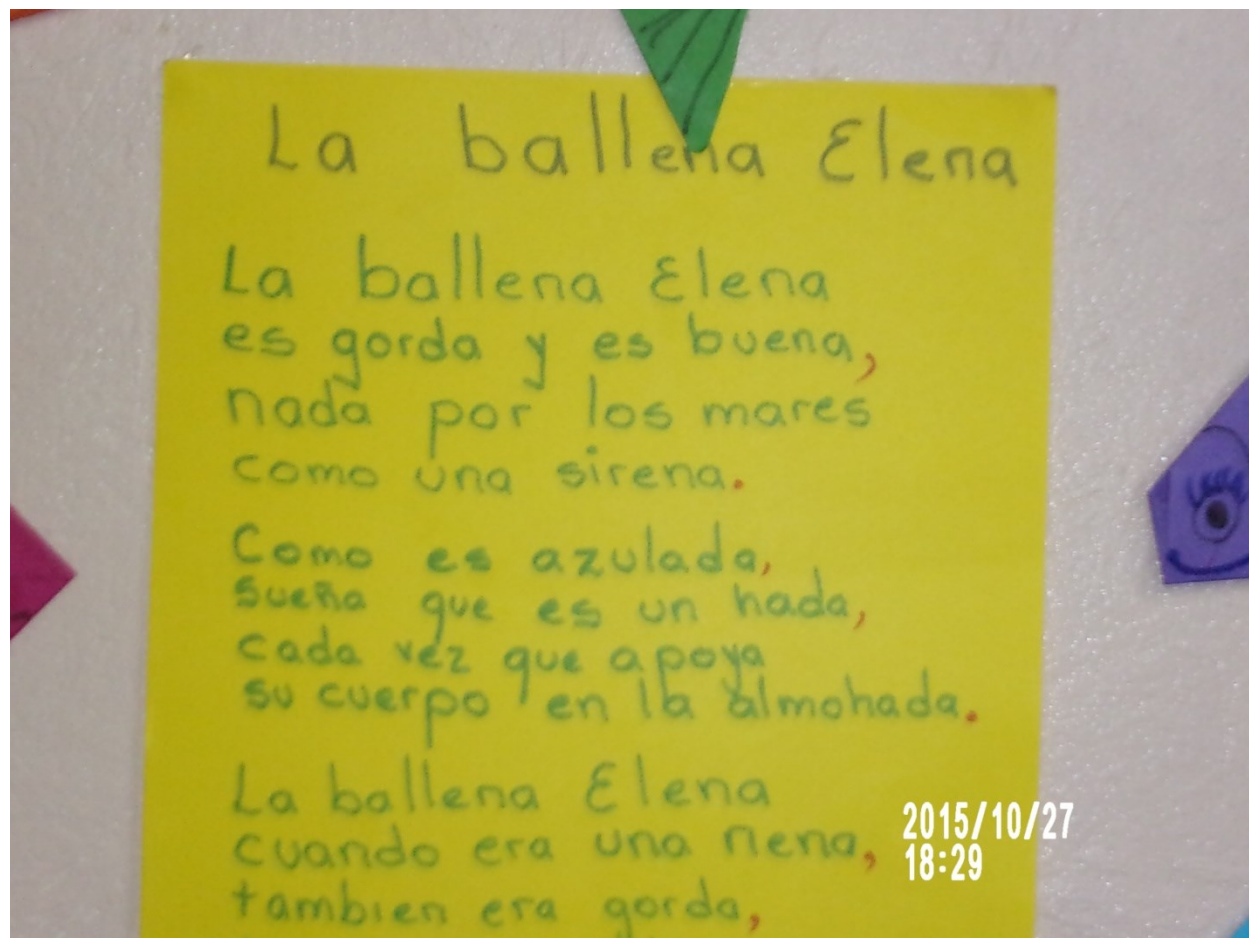 La ballena Elena
La ballena Elena
es gorda y es buena,
nada por los mares
como una sirena.
Como es azulada,
sueña que es un hada,
cada vez que apoya
su cuerpo en la almohada.
La ballena Elena
cuando era una nena,
tambien era gorda,
2015/10/27
18:29